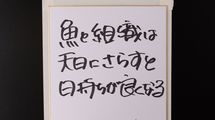 魚も組織は
天日にさらすと
日持ちが良くなる